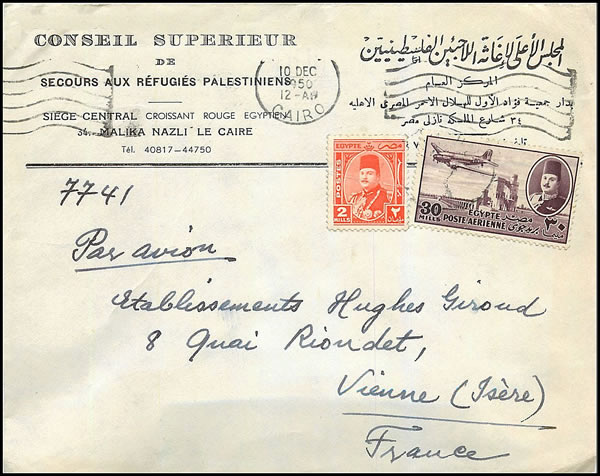 CONSEIL SUPERIEUR
DE
SECOURS AUX RÉFUGIÉS PALESTINIENS
SIÈGE CENTRAL CROISSANT ROUGE EGYPTIEN
34, MALIKA NAZLI LE CAIRE
Tél. 40817-44750
المجلس الأعلى لإغاثة اللاجئين الفلسطينيين
المركز العام
بدار جمعية فؤاد الأول للهلال الأحمر المصرى الاهليه
٣٤ شارع الملكة نازلى مصر
10 DEC
950
12-AM
CAIRO
EGYPTE مصر
POSTES
2 ٢
MILLS
30 EGYPTE مصر ٣٠
MILLS POSTE AÉRIENNE بريد جوى
7741
Par avion
Etablissements Hughes Giroud
8 Quai Riondet,
Vienne (Isère)
France